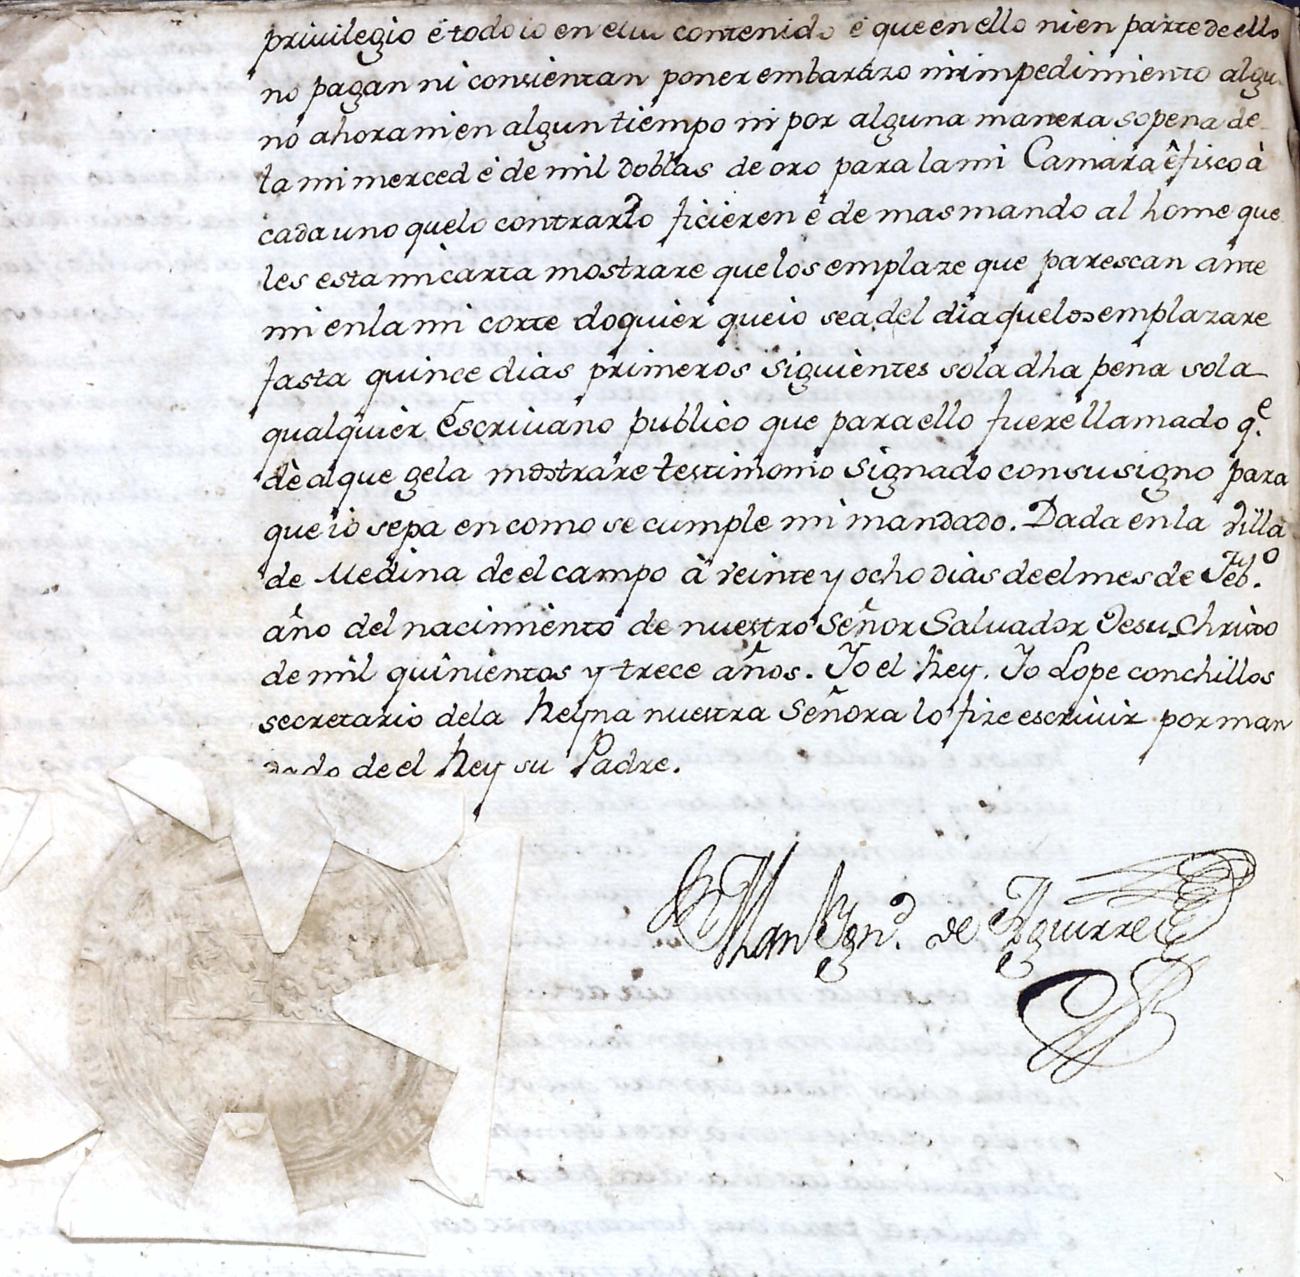 privilegio é todo lo en el contenido é que en ello ni en parte de ello
no pagan ni consientan poner embarazo ni impedimiento algu
no ahora ni en algun tiempo ni por alguna manera sopena de
la mi merced é de mil doblas de oro para la mi Camara ê fisco à
cada uno que lo contrario ficieren é de mas mando al home que
les esta mi carta mostrare que los emplaze que parescan ante
mi en la mi corte doquier que io sea del dia que los emplazare
fasta quince dias primeros siguientes sola dha pena sola
qualquier Escriuano publico que para ello fuere llamado q.e
dè al que gela mostrare testimonio signado con su signo para
que io sepa en como se cumple mi mandado. Dada en la Villa
de Medina de el campo à veinte y ocho dias de el mes de Feb.o
año del nacimiento de nuestro Señor Salvador Jesu Christo
de mil quinientos y trece años. Yo el Rey. Yo Lope conchillos
secretario dela Reyna nuestra Señora lo fize escriuir por man
dado de el Rey su Padre.
Man Ign.o de Aguirre